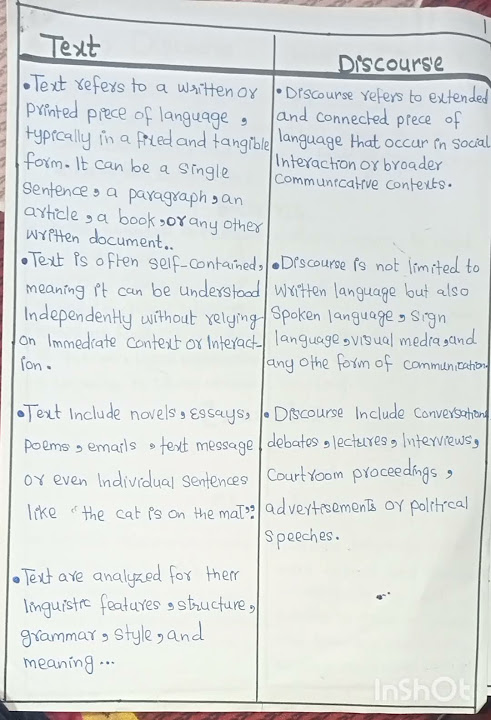 Text
• Text refers to a written or
printed piece of language,
typically in a fixed and tangible
form. It can be a single
sentence, a paragraph, an
article, a book, or any other
written document..
• Text is often self-contained,
meaning it can be understood
Independently without relying
on Immediate context or Interact-
ion.
• Text Include novels, essays,
poems, emails, text message
or even Individual sentences
like "the cat is on the mat".
• Text are analyzed for their
linguistic features, structure,
grammar, style, and
meaning...
Discourse
• Discourse refers to extended
and connected piece of
language that occur in social
Interaction or broader
communicative contexts.
• Discourse is not limited to
written language but also
Spoken language, sign
language, visual media, and
any othe form of communication
• Discourse Include conversations
debates, lectures, Interviews,
Courtroom proceedings,
advertisements or political
speeches.
InShOt